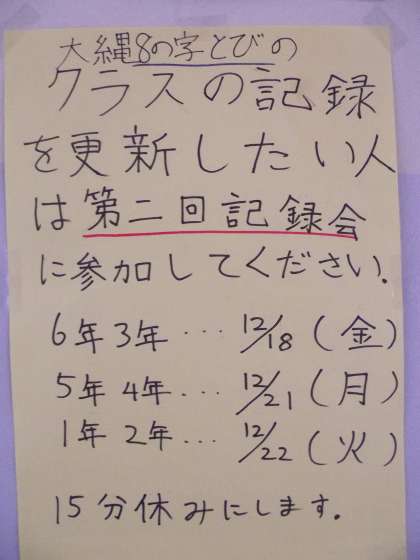 大縄8の字とびの
クラスの記録
を更新したい人
は第二回記録会
に参加してください.
6年3年…12/18(金)
5年4年…12/21(月)
1年2年…12/22(火)
15分休みにします.